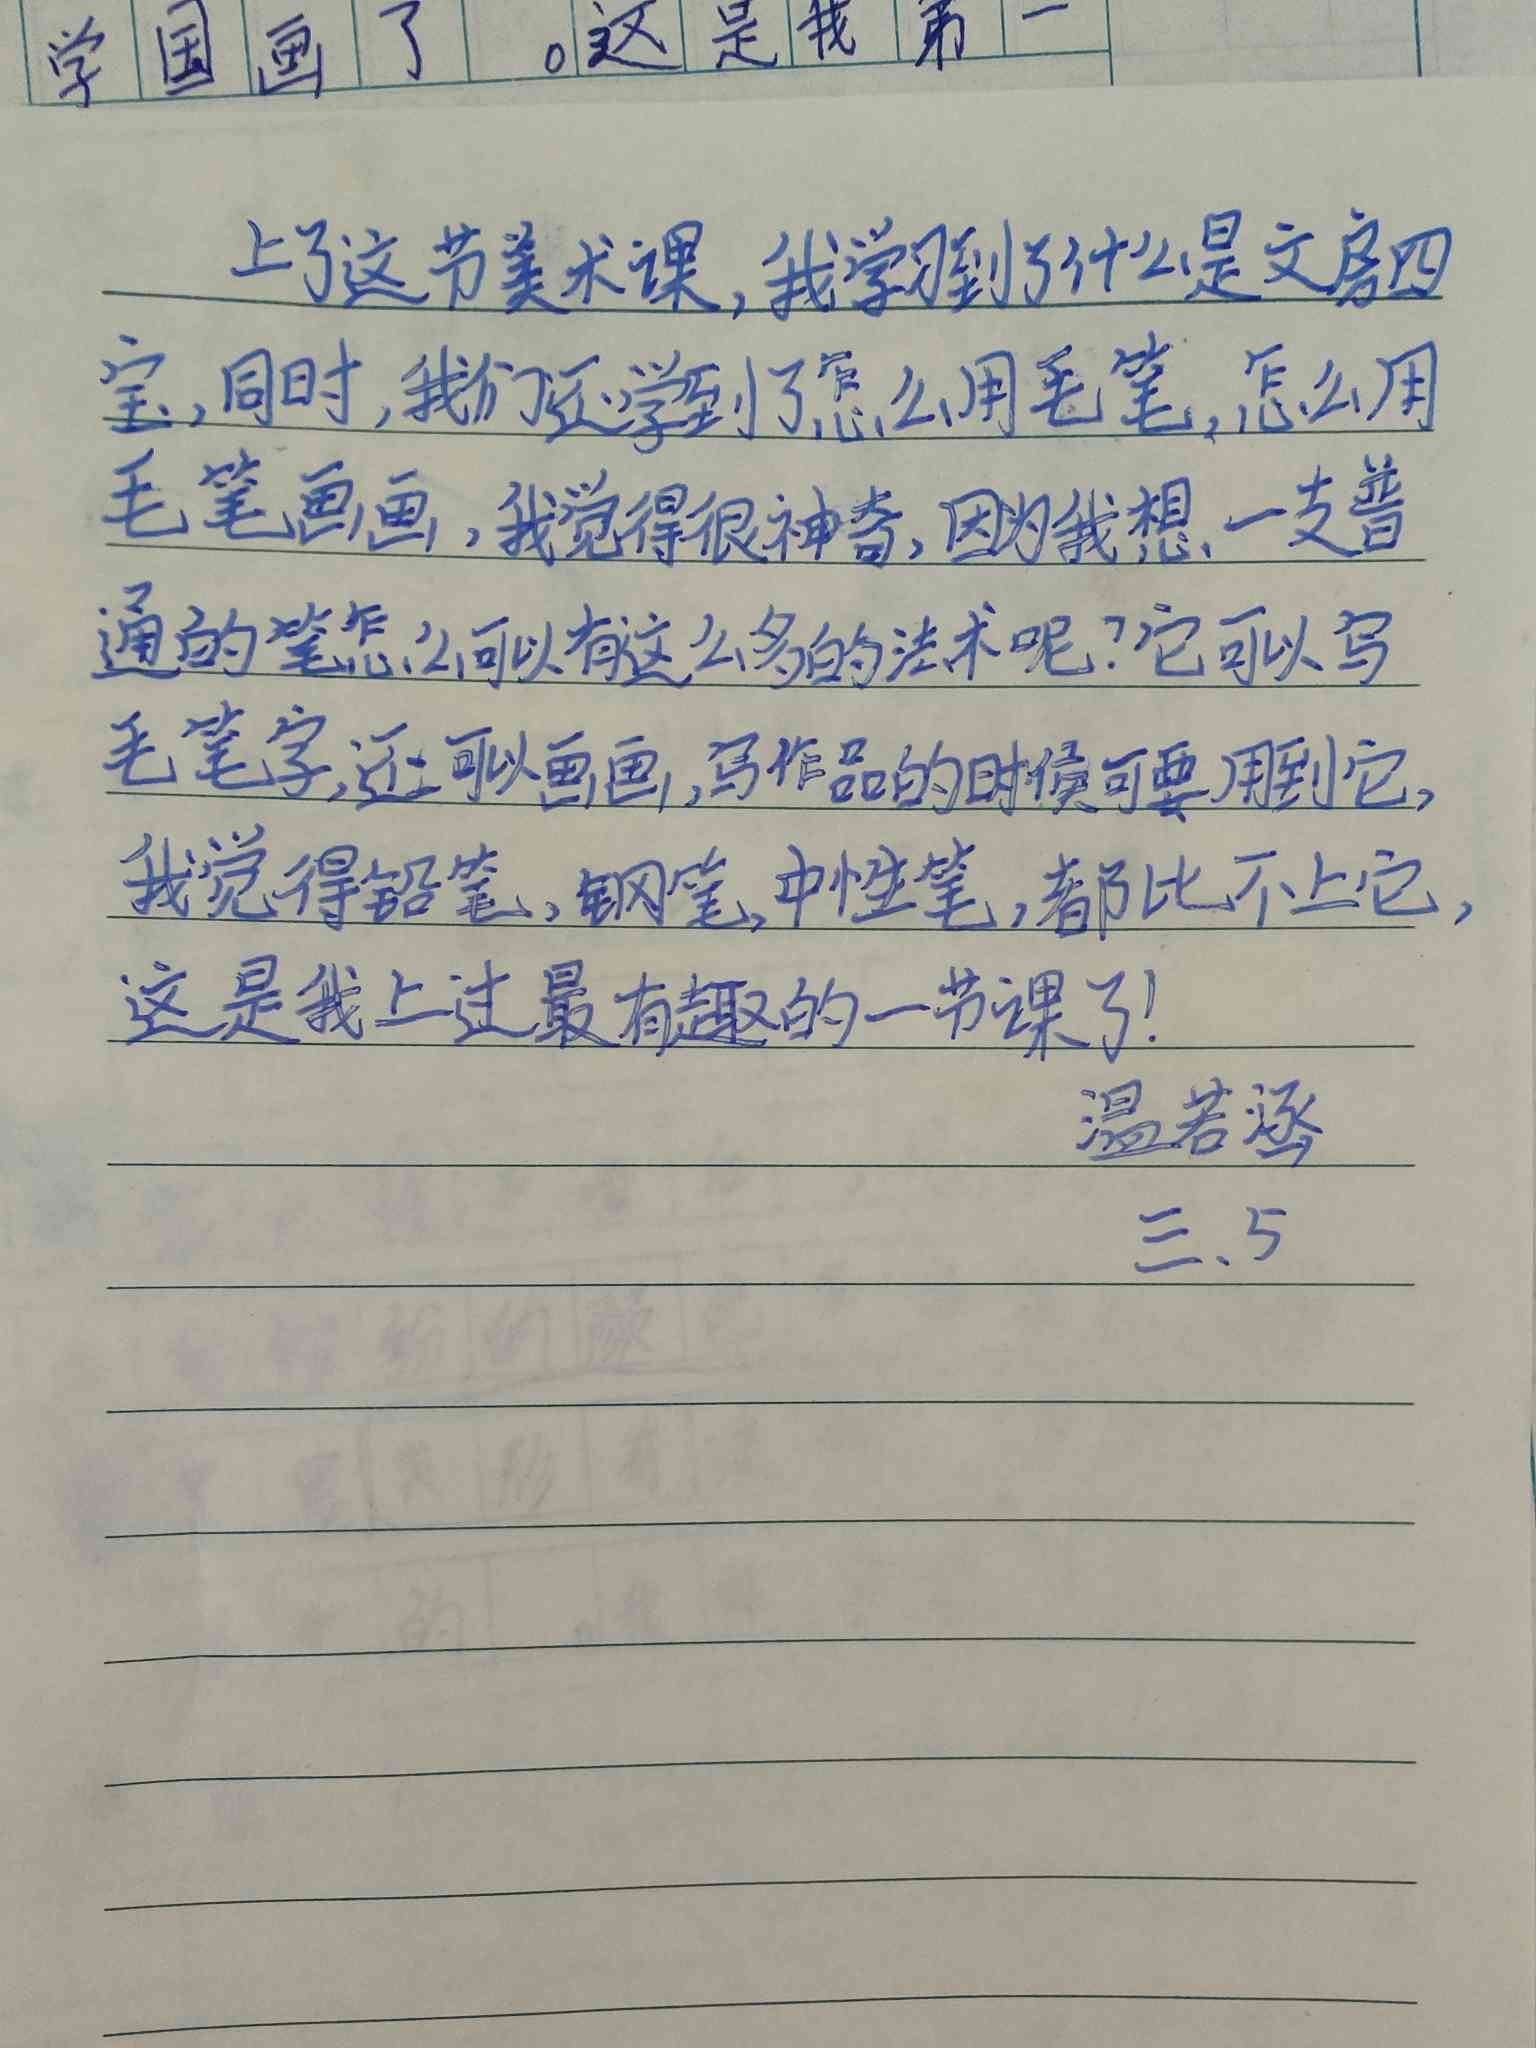 学国画了。这是我第一
上了这节美术课,我学习到了什么是文房四
宝,同时,我们还学到了怎么用毛笔,怎么用
毛笔画画,我觉得很神奇,因为我想、一支普
通的笔怎么可以有这么多的法术呢?它可以写
毛笔字,还可以画画,写作品的时候可要用到它,
我觉得铅笔,钢笔,中性笔,都比不上它,
这是我上过最有趣的一节课了!
温若涵
三、5